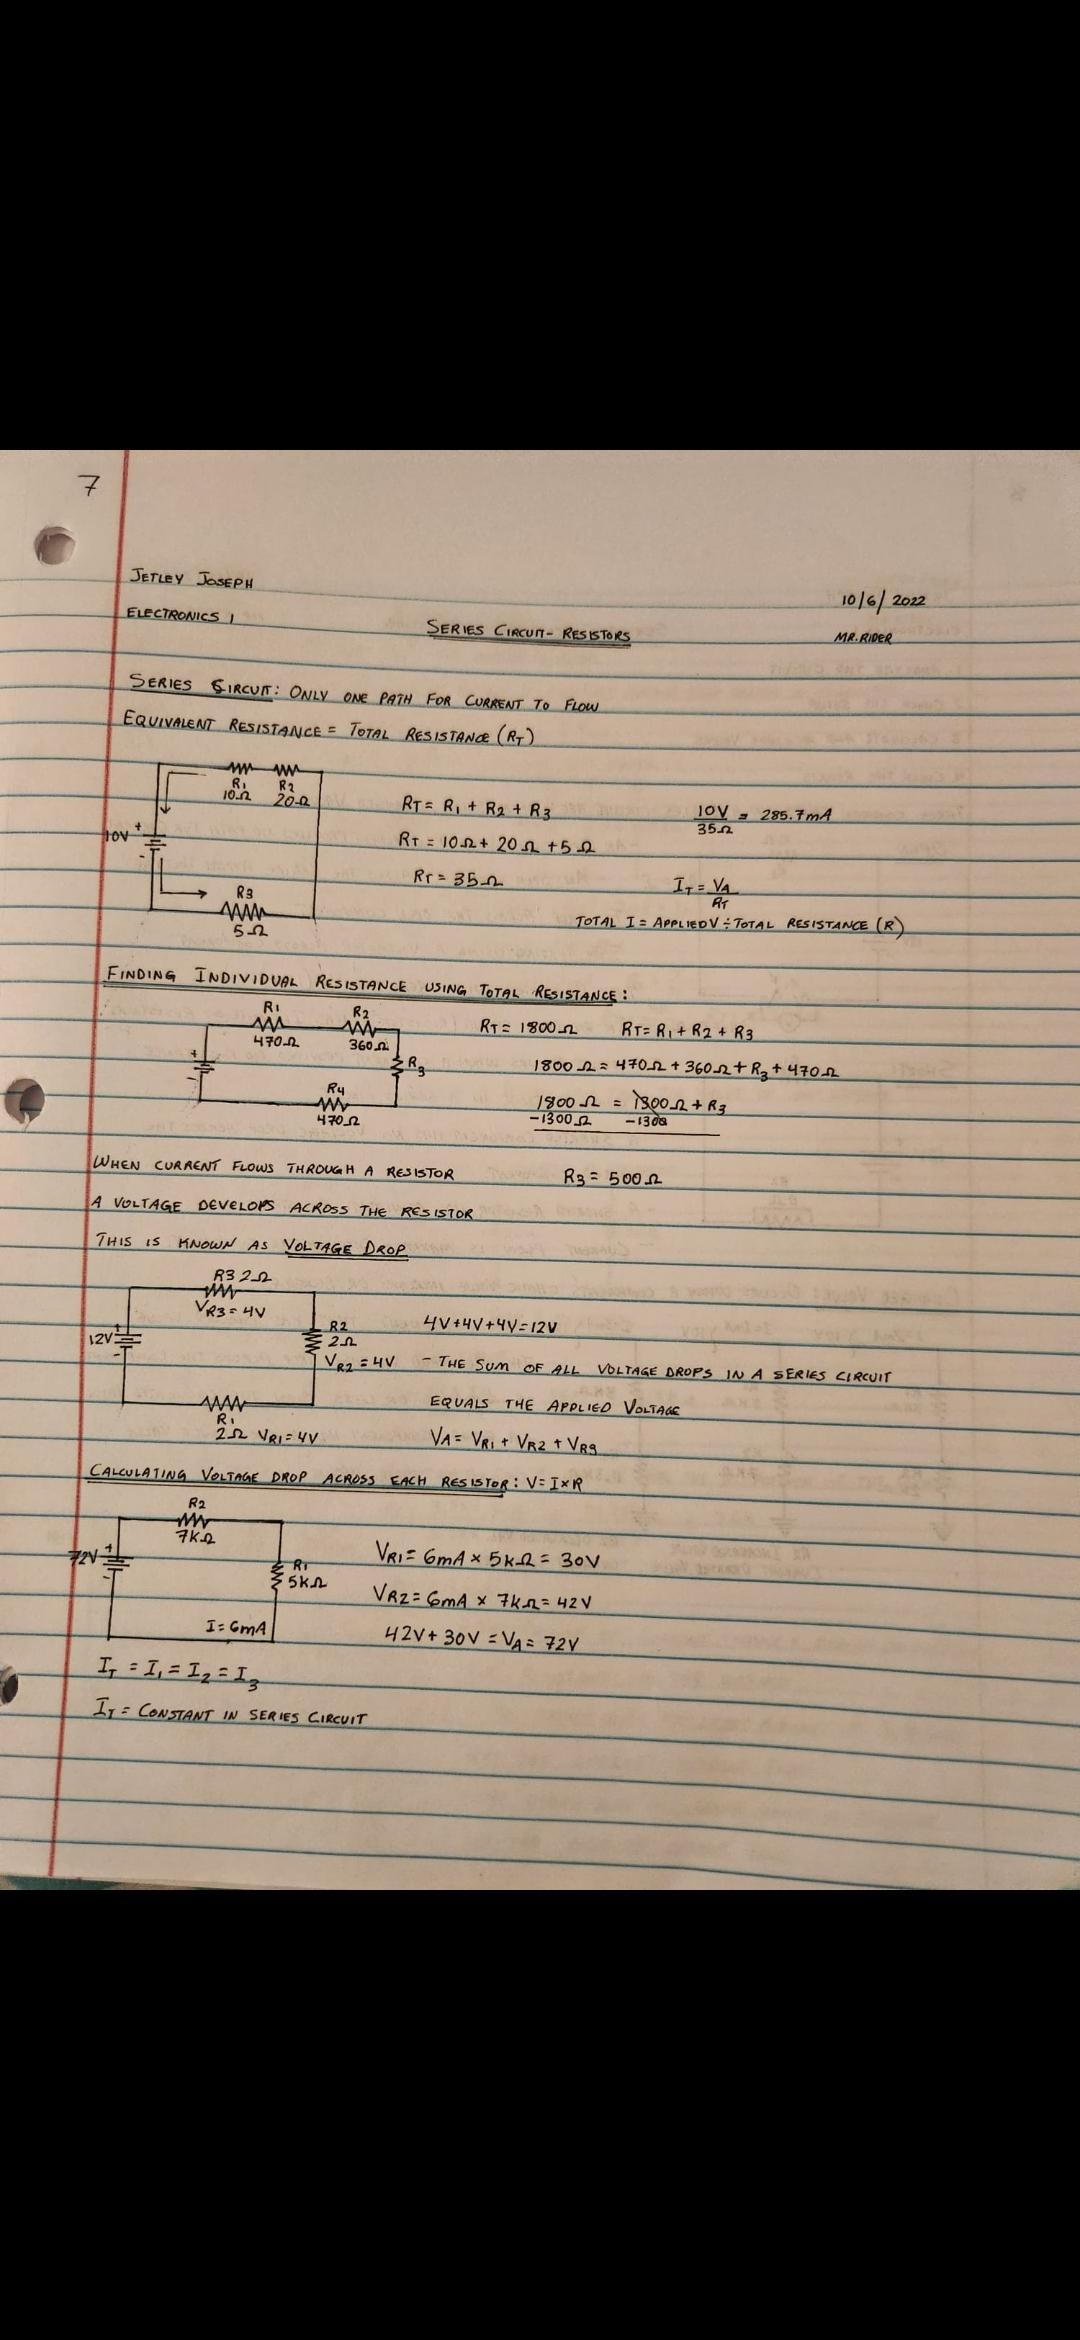 7
JETLEY JOSEPH
10/6/2022
ELECTRONICS 1
SERIES CIRCUIT- RESISTORS
MR. RIDER
SERIES CIRCUIT: ONLY ONE PATH FOR CURRENT TO FLOW
EQUIVALENT RESISTANCE = TOTAL RESISTANCE (RT)
R1 R2
10Ω 20Ω
RT = R1 + R2 + R3
10V/35Ω = 285.7mA
10V + -
RT = 10Ω + 20Ω + 5Ω
RT = 35Ω
IT = VA/RT
R3
5Ω
TOTAL I = APPLIED V ÷ TOTAL RESISTANCE (R)
FINDING INDIVIDUAL RESISTANCE USING TOTAL RESISTANCE:
R1 R2
470Ω 360Ω
RT = 1800Ω RT = R1 + R2 + R3
+ -
R3
1800Ω = 470Ω + 360Ω + R3 + 470Ω
R4
470Ω
1800Ω = 1300Ω + R3
-1300Ω -1300
WHEN CURRENT FLOWS THROUGH A RESISTOR
R3 = 500Ω
A VOLTAGE DEVELOPS ACROSS THE RESISTOR
THIS IS KNOWN AS VOLTAGE DROP
R3 2Ω
VR3 = 4V
12V + -
R2
2Ω
VR2 = 4V
4V+4V+4V=12V
- THE SUM OF ALL VOLTAGE DROPS IN A SERIES CIRCUIT
EQUALS THE APPLIED VOLTAGE
R1
2Ω VR1 = 4V
VA = VR1 + VR2 + VR3
CALCULATING VOLTAGE DROP ACROSS EACH RESISTOR: V = I×R
R2
7KΩ
72V + -
R1
5KΩ
VR1 = 6mA × 5KΩ = 30V
VR2 = 6mA × 7KΩ = 42V
I = 6mA
42V + 30V = VA = 72V
IT = I1 = I2 = I3
IT = CONSTANT IN SERIES CIRCUIT